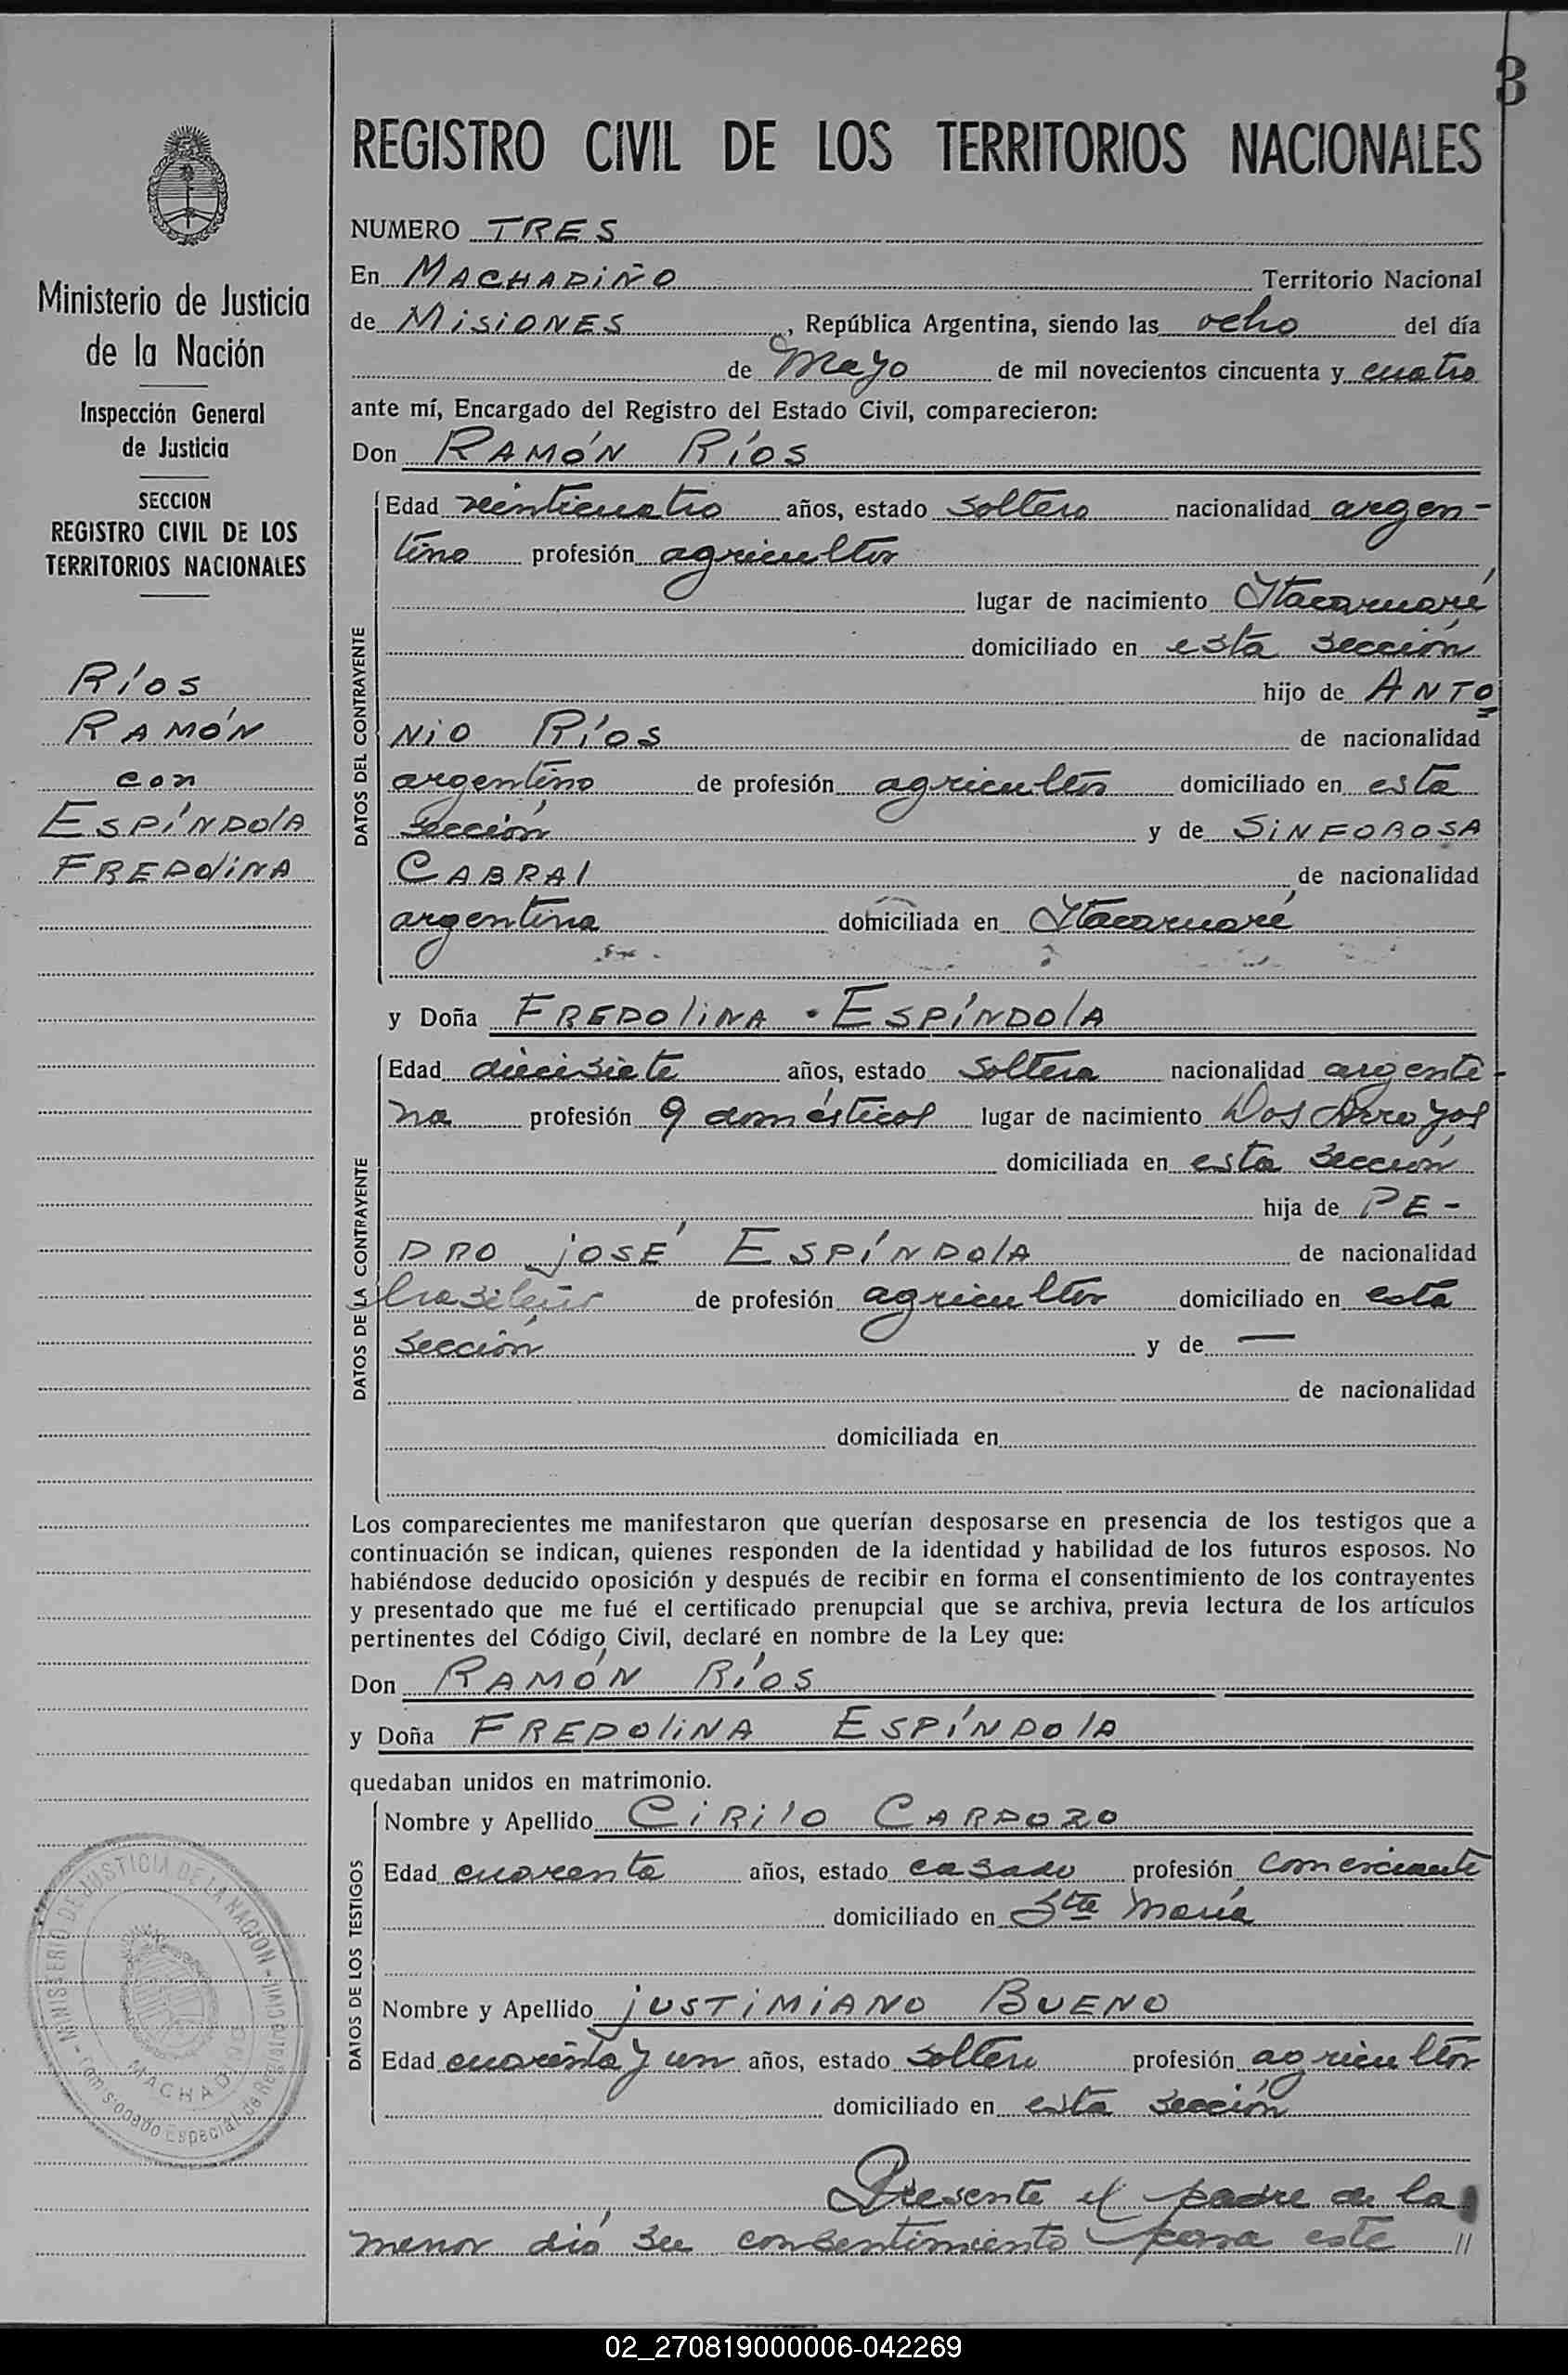 3
REGISTRO CIVIL DE LOS TERRITORIOS NACIONALES
NUMERO TRES
En MACHADIÑO Territorio Nacional
de MISIONES, República Argentina, siendo las ocho del día
de Mayo de mil novecientos cincuenta y cuatro
ante mí, Encargado del Registro del Estado Civil, comparecieron:
Don RAMÓN RÍOS
DATOS DEL CONTRAYENTE
Edad veinticuatro años, estado soltero nacionalidad argen-
tino profesión agricultor
lugar de nacimiento Itacaruaré
domiciliado en esta sección
hijo de ANTO
NIO RÍOS de nacionalidad
argentino de profesión agricultor domiciliado en esta
sección y de SINFOROSA
CABRAL de nacionalidad
argentina domiciliada en Itacaruaré
y Doña FREDOLINA ESPÍNDOLA
DATOS DE LA CONTRAYENTE
Edad diecisiete años, estado soltera nacionalidad argenti-
na profesión q domésticos lugar de nacimiento Dos Arroyos
domiciliada en esta sección
hija de PE-
DRO JOSÉ ESPÍNDOLA de nacionalidad
brasileño de profesión agricultor domiciliado en esta
sección y de —
de nacionalidad
domiciliada en
Los comparecientes me manifestaron que querían desposarse en presencia de los testigos que a
continuación se indican, quienes responden de la identidad y habilidad de los futuros esposos. No
habiéndose deducido oposición y después de recibir en forma el consentimiento de los contrayentes
y presentado que me fué el certificado prenupcial que se archiva, previa lectura de los artículos
pertinentes del Código Civil, declaré en nombre de la Ley que:
Don RAMÓN RÍOS
y Doña FREDOLINA ESPÍNDOLA
quedaban unidos en matrimonio.
DATOS DE LOS TESTIGOS
Nombre y Apellido CIRILO CARDOZO
Edad cuarenta años, estado casado profesión comerciante
domiciliado en Sta María
Nombre y Apellido JUSTIMIANO BUENO
Edad cuarenta y un años, estado soltero profesión agricultor
domiciliado en esta sección
Presente el padre de la
menor dió su consentimiento para este //
Ministerio de Justicia
de la Nación
Inspección General
de Justicia
SECCION
REGISTRO CIVIL DE LOS
TERRITORIOS NACIONALES
RÍOS
RAMÓN
con
ESPÍNDOLA
FREDOLINA
MINISTERIO DE JUSTICIA DE LA NACION
02_270819000006-042269